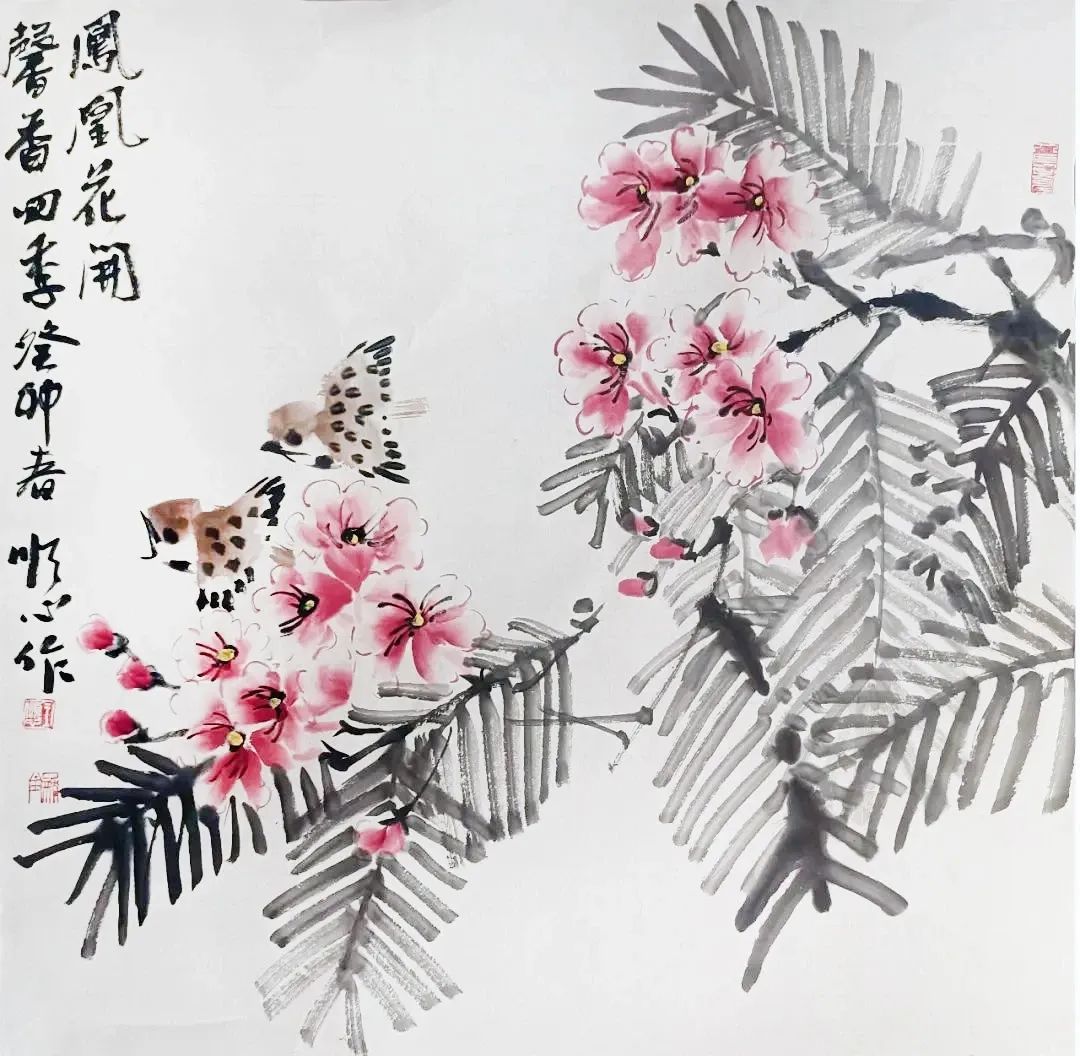 鳳凰花開
馨香四季癸卯春 順心作